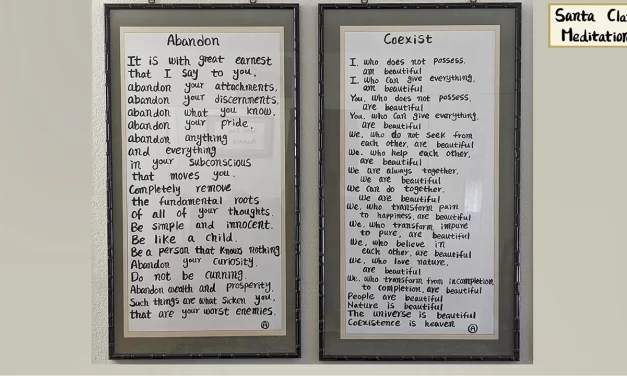 Abandon
It is with great earnest
that I say to you,
abandon your attachments,
abandon your discernments,
abandon what you know,
abandon your pride,
abandon anything
and everything
in your subconscious
that moves you.
Completely remove
the fundamental roots
of all of your thoughts.
Be simple and innocent.
Be like a child.
Be a person that knows nothing
Abandon your curiosity.
Do not be cunning.
Abandon wealth and prosperity.
Such things are what sicken you,
that are your worst enemies.
Coexist
I, who does not possess,
am beautiful
I, who can give everything,
am beautiful
You, who does not possess,
are beautiful
You, who can give everything,
are beautiful
We, who do not seek from
each other, are beautiful
We, who help each other,
are beautiful
We are always together,
we are beautiful
We can do together,
we are beautiful
We, who transform pain
to happiness, are beautiful
We, who transform impure
to pure, are beautiful
We, who believe in
each other, are beautiful
We, who love nature,
are beautiful
We, who transform from incompletion
to completion, are beautiful
People are beautiful
Nature is beautiful
The universe is beautiful
Coexistence is heaven
Santa Cla
Meditation